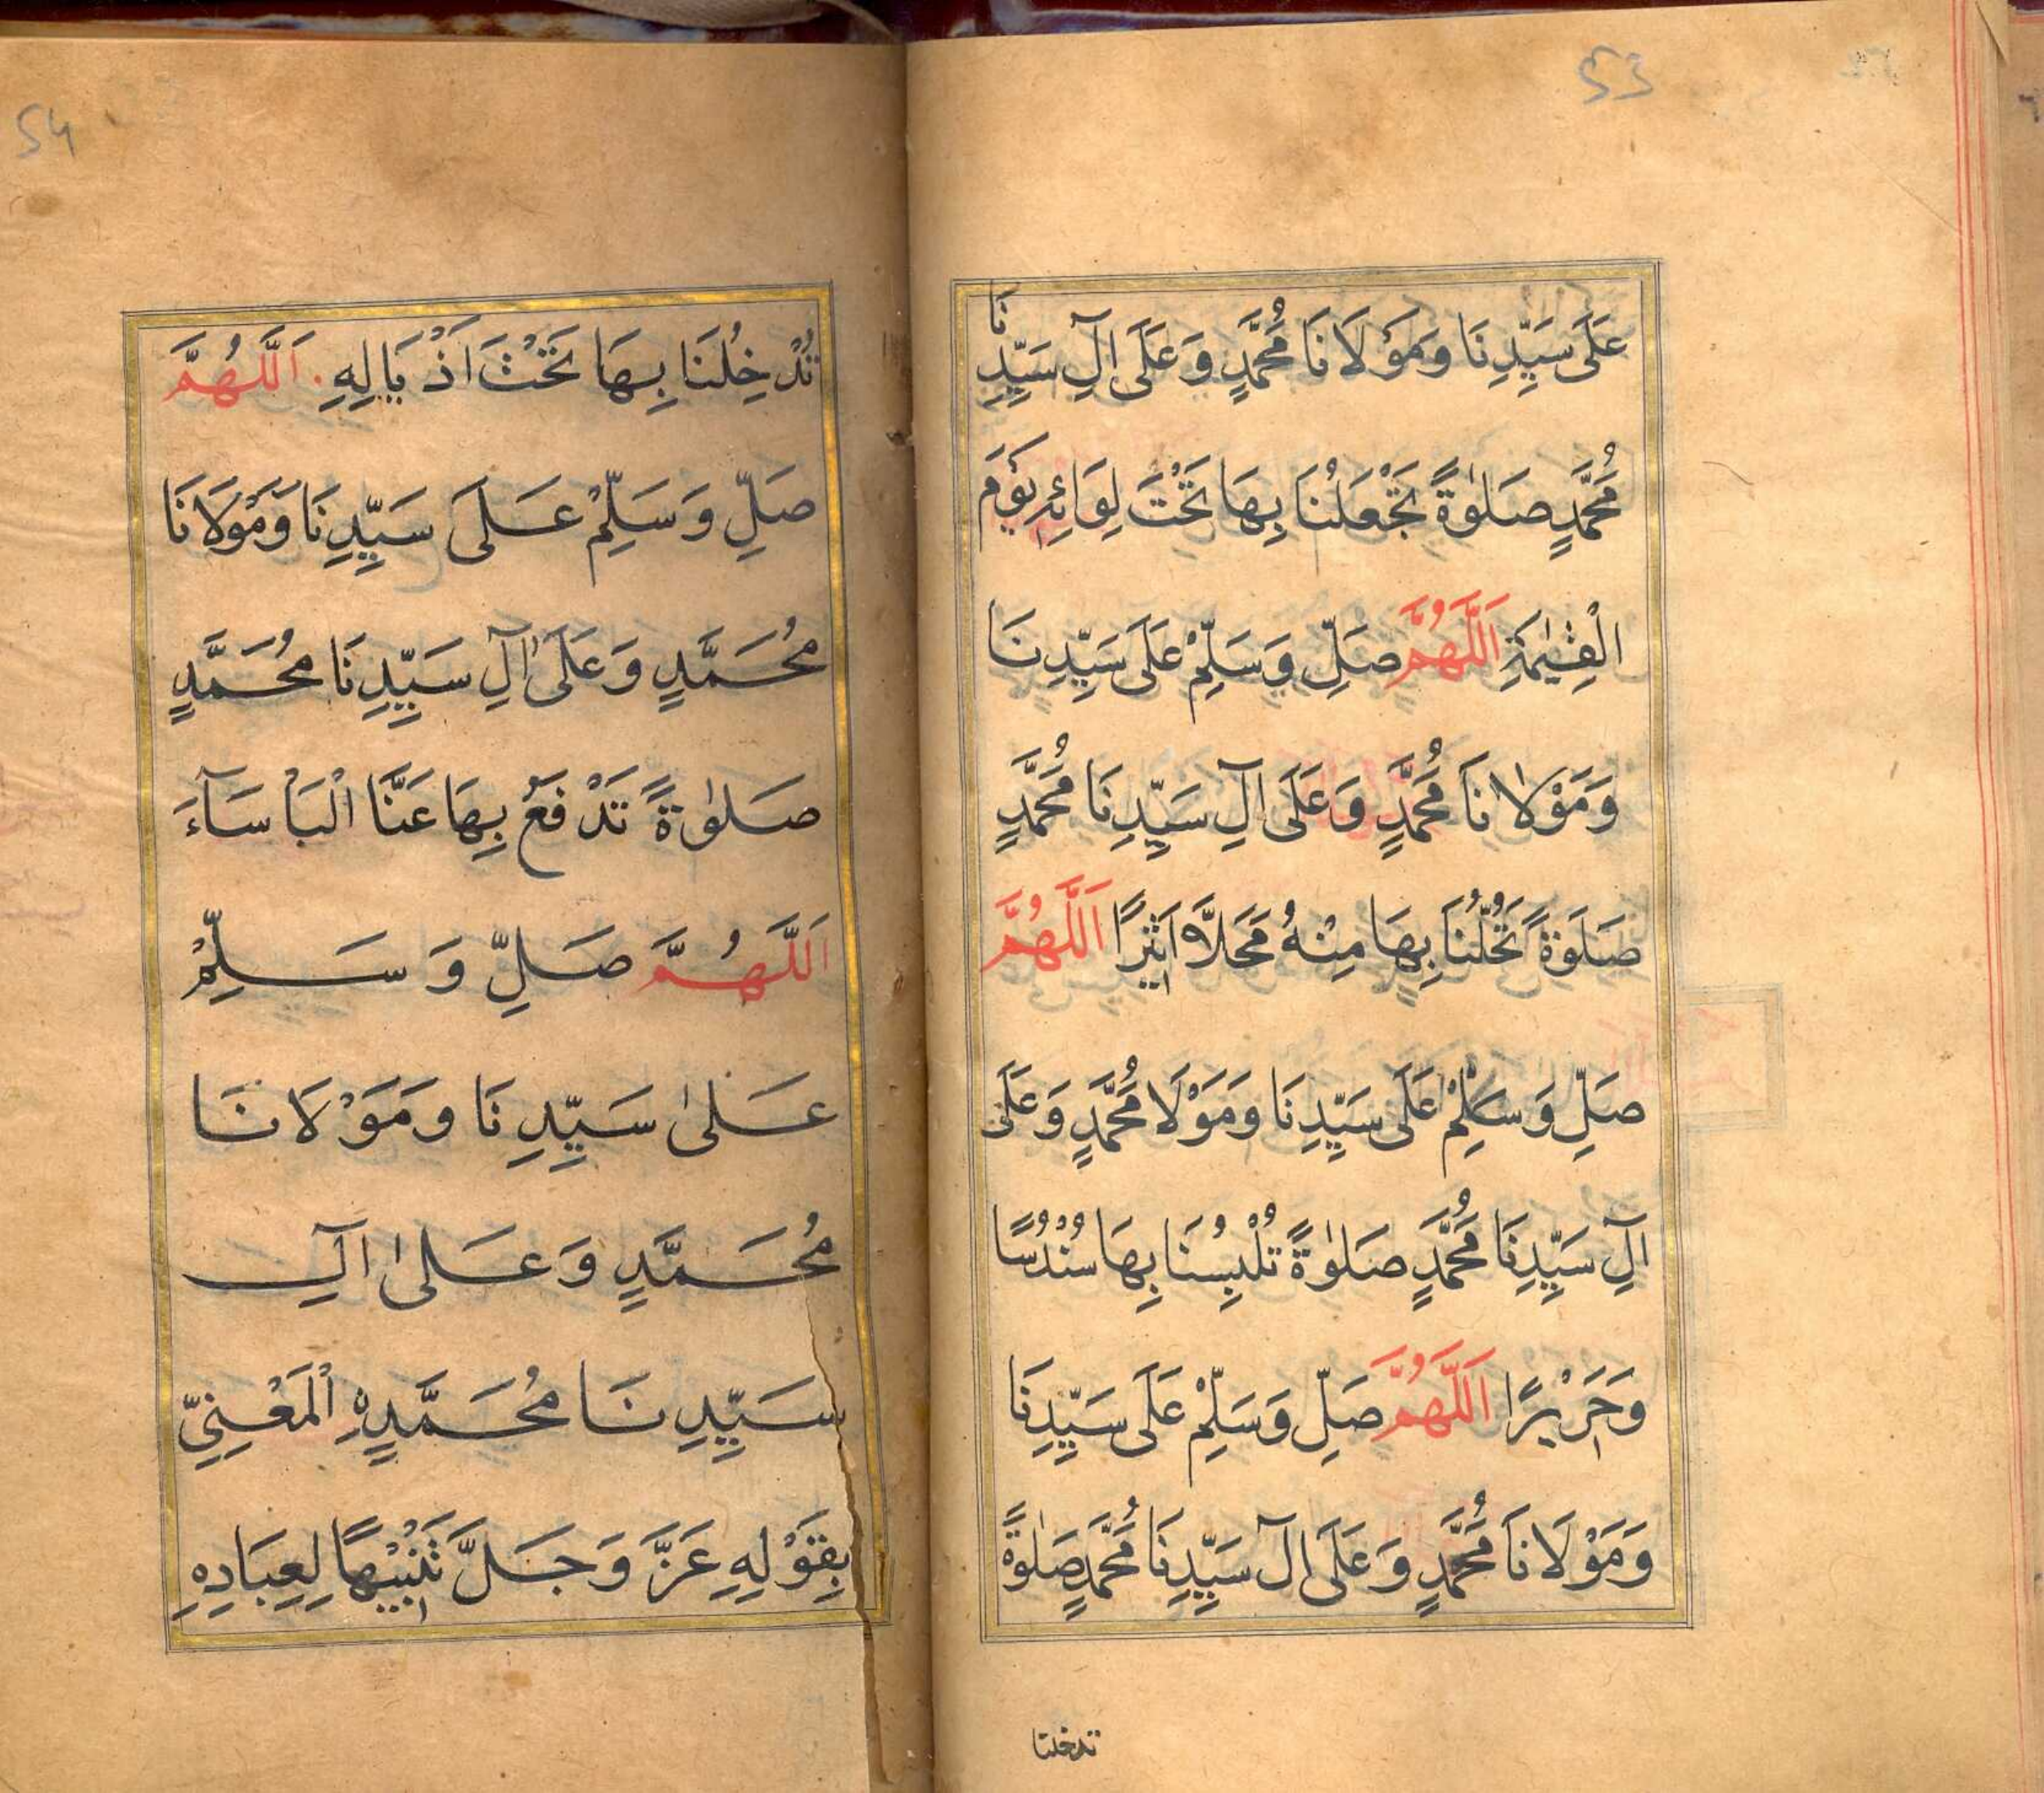 53
عَلَى سَيِّدِنَا وَمَوْلَانَا مُحَمَّدٍ وَعَلَى اٰلِ سَيِّدِنَا
مُحَمَّدٍ صَلٰوةً تَجْعَلُنَا بِهَا تَحْتَ لِوَائِهِ يَوْمَ
الْقِيٰمَةِ اَللّٰهُمَّ صَلِّ وَسَلِّمْ عَلَى سَيِّدِنَا
وَمَوْلَانَا مُحَمَّدٍ وَعَلَى اٰلِ سَيِّدِنَا مُحَمَّدٍ
صَلَوةً تُحِلُّنَا بِهَا مِنْهُ مَحَلاًّ اَثِيْرًا اَللّٰهُمَّ
صَلِّ وَسَلِّمْ عَلَى سَيِّدِنَا وَمَوْلَا مُحَمَّدٍ وَعَلَى
اٰلِ سَيِّدِنَا مُحَمَّدٍ صَلٰوةً تُلْبِسُنَا بِهَا سُنْدُسًا
وَحَرِيْرًا اَللّٰهُمَّ صَلِّ وَسَلِّمْ عَلَى سَيِّدِنَا
وَمَوْلَانَا مُحَمَّدٍ وَعَلَى اٰل سَيِّدِنَا مُحَمَّدٍ صَلٰوةً
تدخلنا
54
تُدْخِلُنَا بِهَا تَحْتَ اَذْيَالِهِ . اَللّٰهُمَّ
صَلِّ وَسَلِّمْ عَلَى سَيِّدِنَا وَمَوْلَانَا
مُحَمَّدٍ وَعَلَى اٰلِ سَيِّدِنَا مُحَمَّدٍ
صَلٰوةً تَدْفَعُ بِهَا عَنَّا الْبَأْسَآءَ
اَللّٰهُمَّ صَلِّ وَسَلِّمْ
عَلٰى سَيِّدِنَا وَمَوْلَانَا
مُحَمَّدٍ وَعَلٰى اٰلِ
سَيِّدِنَا مُحَمَّدِهِ الْمَعْنِيِّ
بِقَوْلِهِ عَزَّ وَجَلَّ تَنْبِيْهًا لِعِبَادِهِ